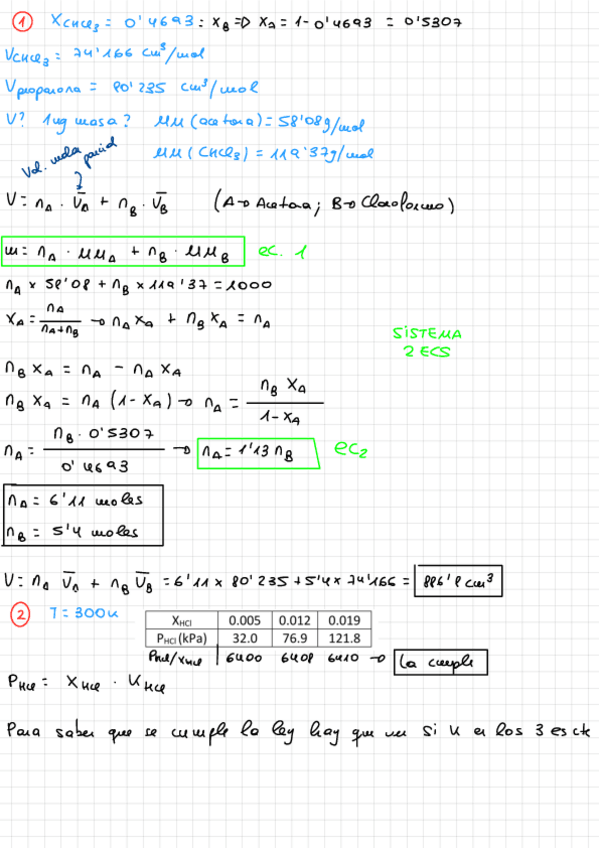 ① XCHCl3 = 0'4693 : xB ⇒ xA = 1-0'4693 = 0'5307
VCHCl3 = 74'166 cm³/mol
Vpropanona = 80'235 cm³/mol
V? 1kg masa? MM (acetona) = 58'08g/mol
Vol. molar parcial
MM (CHCl3) = 119'37g/mol
V = nA · V̄A + nB · V̄B (A→Acetona; B→Cloroformo)
m = nA · MMA + nB · MMB ec. 1
nA × 58'08 + nB × 119'37 = 1000
xA = nA/(nA+nB) → nA xA + nB xA = nA
SISTEMA
2 ECS
nB xA = nA - nA xA
nB xA = nA (1-xA) → nA = nB xA/(1-xA)
nA = nB · 0'5307/0'4693 → nA = 1'13 nB ec2
nA = 6'11 moles
nB = 5'4 moles
V = nA V̄A + nB V̄B = 6'11 × 80'235 + 5'4 × 74'166 = 886'8 cm³
② T = 300K
XHCl 0.005 0.012 0.019
PHCl (kPa) 32.0 76.9 121.8
PHCl/xHCl 6400 6408 6410 → la cumple
PHCl = XHCl · KHCl
Para saber que se cumple la ley hay que ver si K en los 3 es cte